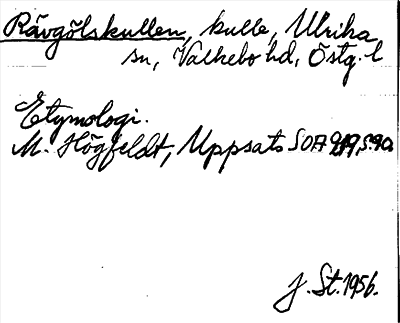 Rävgölskullen, kulle, Ulrika
sn, Valkebo hd, Östg. l
Etymologi.
M. Högfeldt, Uppsats SOA 919, s. 90
J. St. 1956.